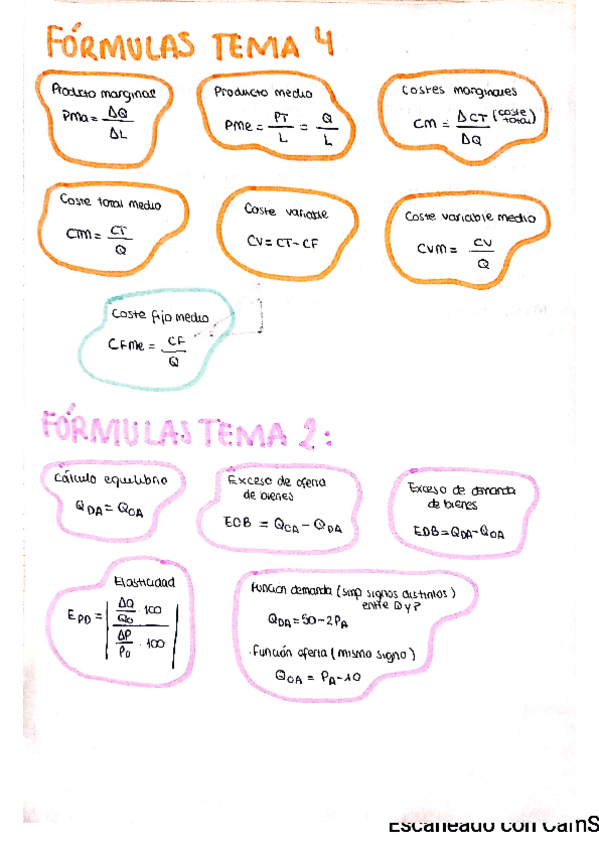 FÓRMULAS TEMA 4
Producto marginal
PMa = ΔQ / ΔL
Producto medio
PMe = PT / L = Q / L
Costes marginales
CM = ΔCT (coste total) / ΔQ
Coste total medio
CTM = CT / Q
Coste variable
CV = CT - CF
Coste variable medio
CVM = CV / Q
Coste fijo medio
CFMe = CF / Q
FÓRMULAS TEMA 2:
Cálculo equilibrio
QDA = QOA
Exceso de oferta
de bienes
EOB = QOA - QDA
Exceso de demanda
de bienes
EDB = QDA - QOA
Elasticidad
EPD = | ΔQ / Q0 · 100 / ΔP / P0 · 100 |
Función demanda (simp signos distintos)
entre Q y P
QDA = 50 - 2PA
· Función oferta (mismo signo)
QOA = PA - 10
Escaneado con CamS